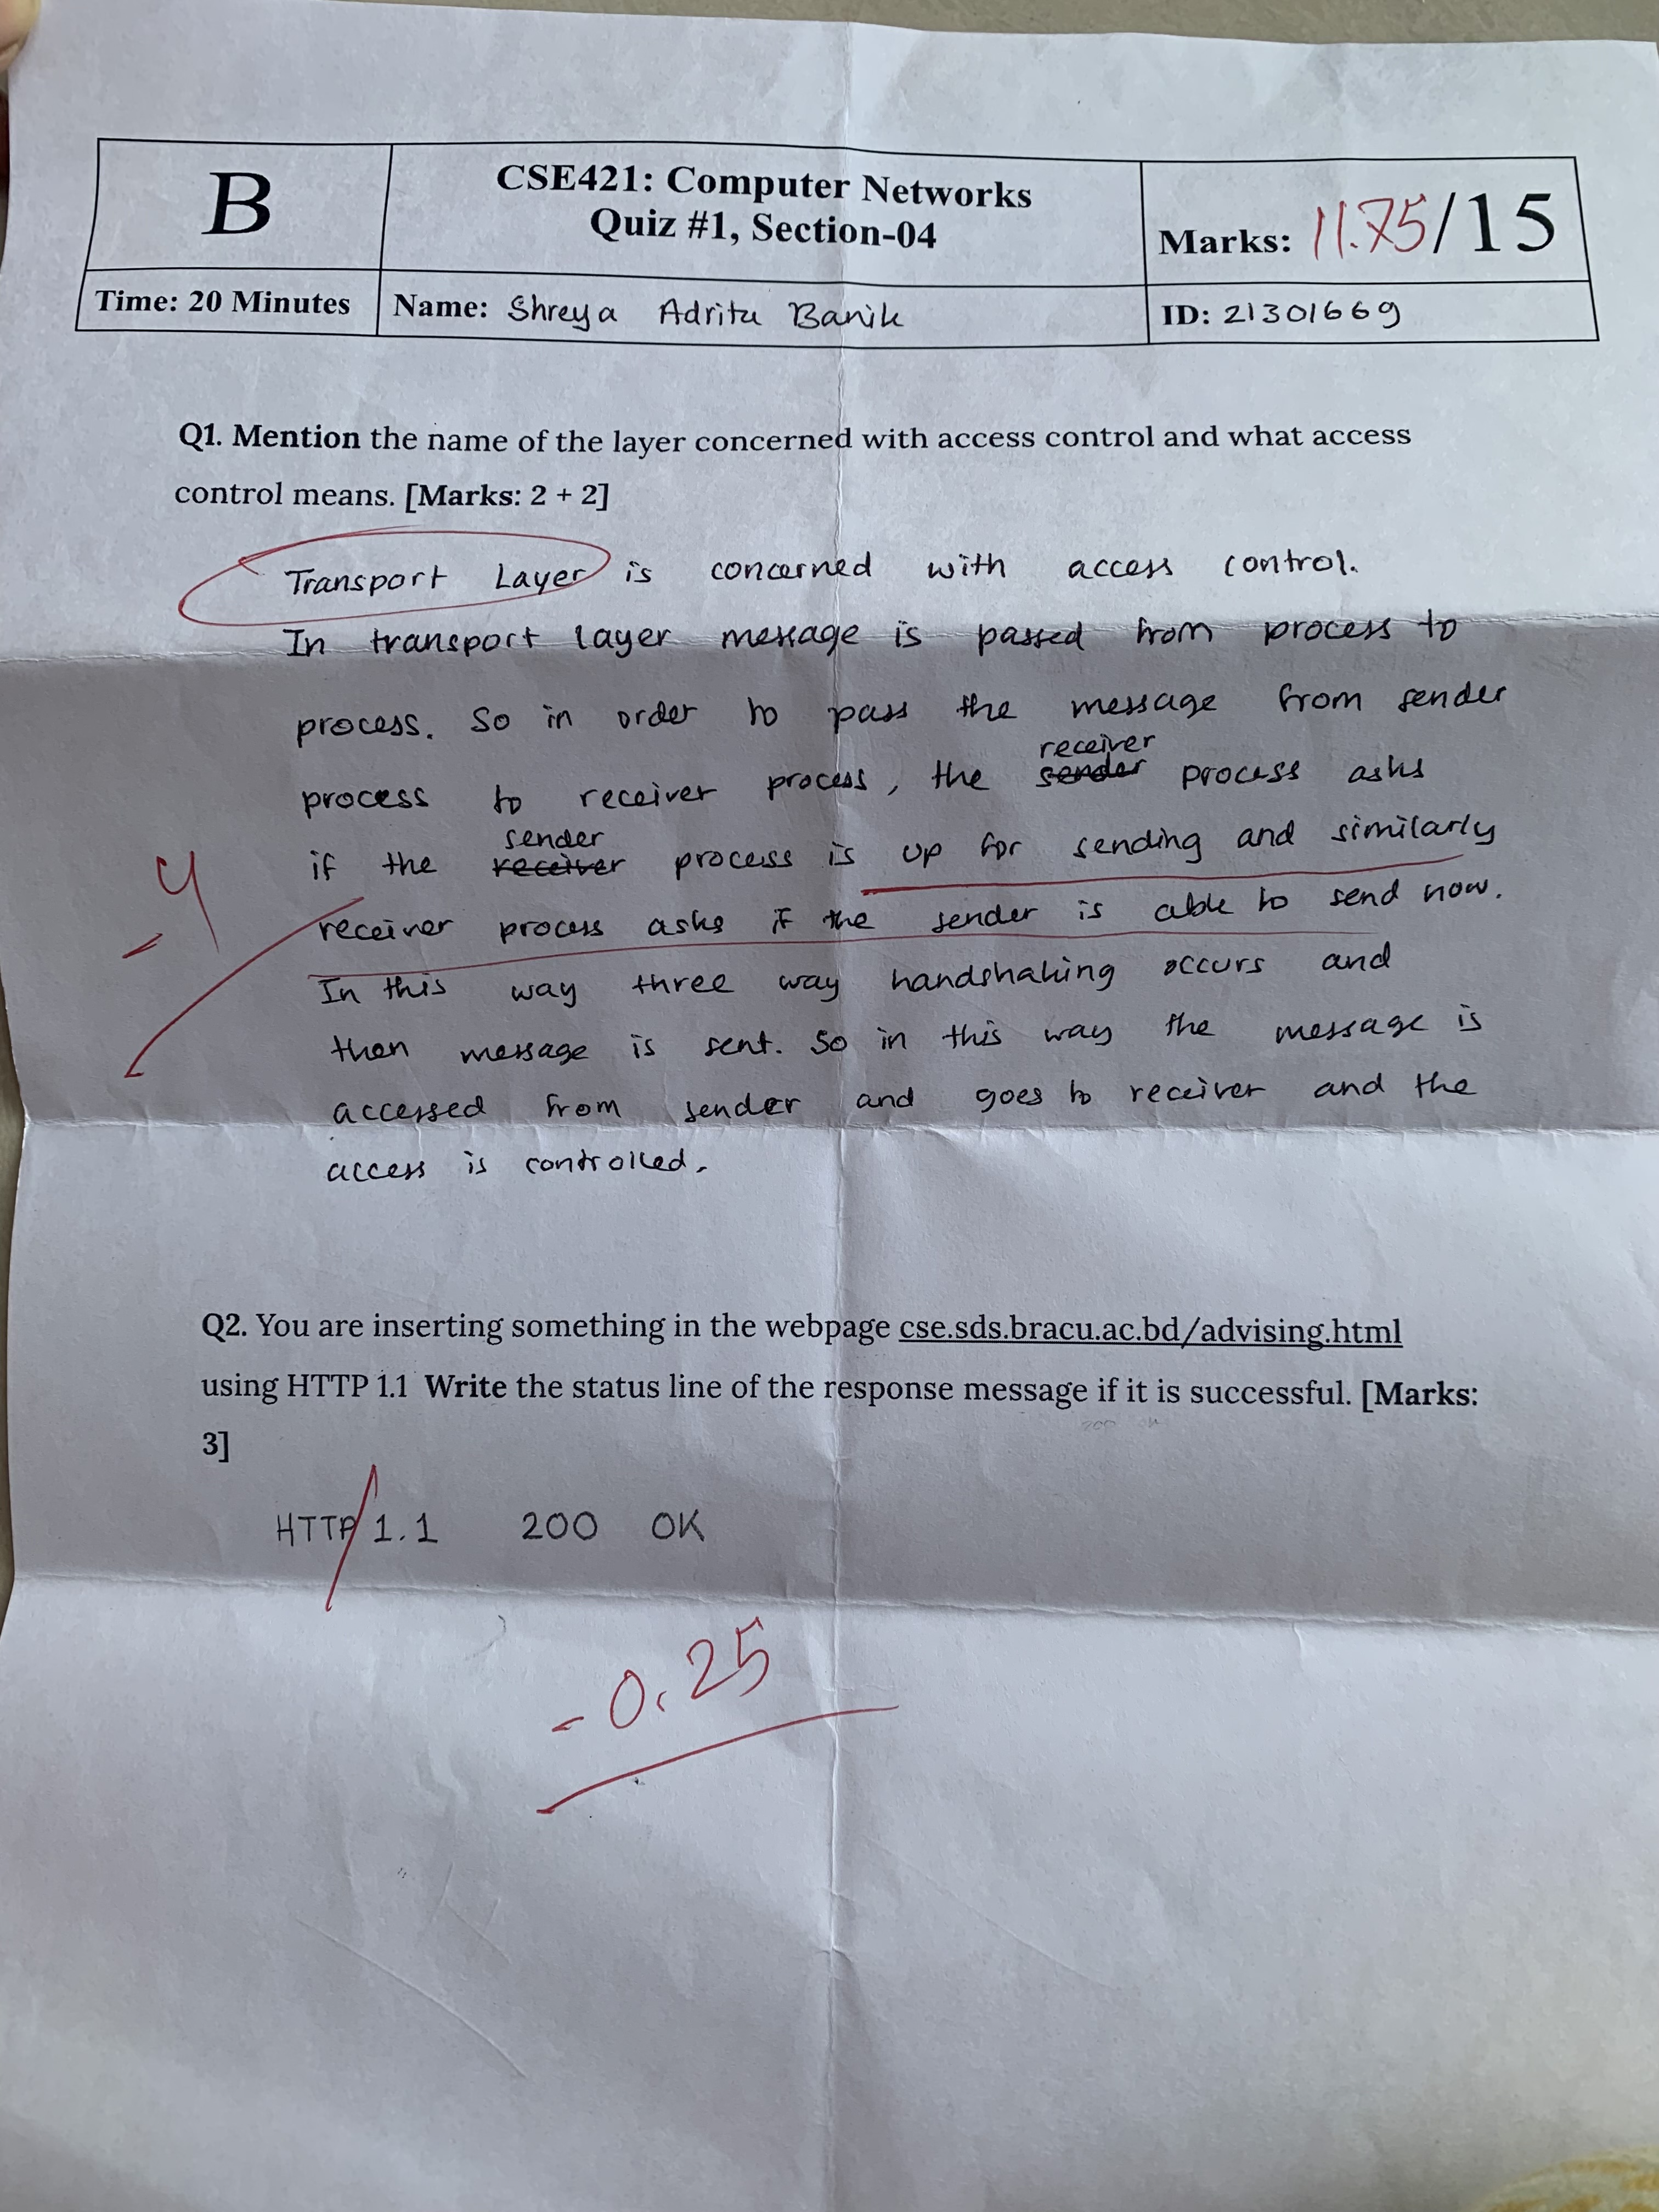 B
CSE421: Computer Networks
Quiz #1, Section-04
Marks: 11.75/15
Time: 20 Minutes
Name: Shreya Adrita Banik
ID: 21301669
Q1. Mention the name of the layer concerned with access control and what access
control means. [Marks: 2 + 2]
Transport Layer is concerned with access control.
In transport layer message is passed from process to
process. So in order to pass the message from sender
receiver
process to receiver process, the sender process asks
sender
if the receiver process is up for sending and similarly
receiver process asks if the sender is able to send now.
In this way three way handshaking occurs and
then message is sent. So in this way the message is
accessed from sender and goes to receiver and the
access is controlled.
-4
Q2. You are inserting something in the webpage cse.sds.bracu.ac.bd/advising.html
using HTTP 1.1 Write the status line of the response message if it is successful. [Marks:
3]
HTTP/1.1 200 OK
-0.25